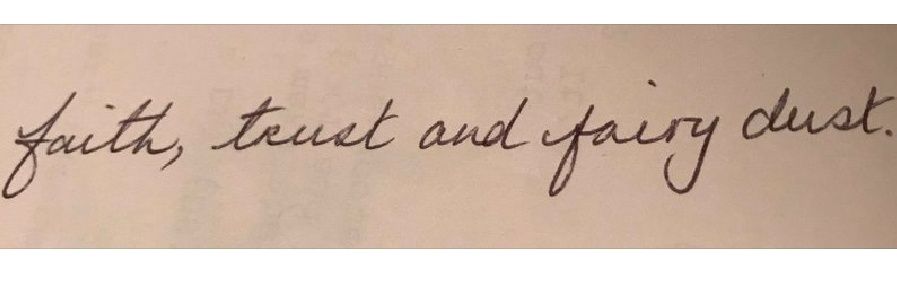 faith, trust and fairy dust.